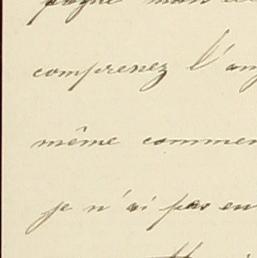 comprenez l'an
même commen
je n'ai pas en